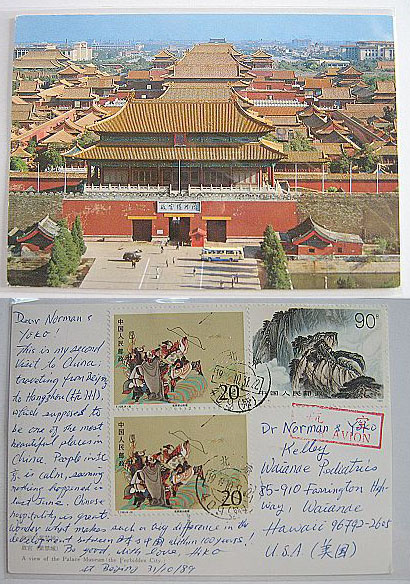 故宫博物院
Dear Norman &
Yoko
This is my second
visit to China.
traveling from Beijing
to Hongzhou (杭州),
which supposed to
be one of the most
beautiful places in
China. People in st
is calm, seeming
nothing happened in
last June. Chinese
hospitality is great.
Wonder what makes such a big difference in the
development between 日本 & 中国 within 100 years!
Be good with love, Akio
at Beijing 31/10/89
故宫 (紫禁城)
A view of the Palace Museum (the Forbidden City)
中国人民邮政
20分
中国人民邮政
20分
90分
中国人民邮政
北
1989.10.31.22
航空
PAR AVION
Dr Norman & Yoko
Kelley
Waianae Pediatrics
85-910 Farrington High-
way, Waianae
Hawaii 96792-2605
U.S.A (美国)